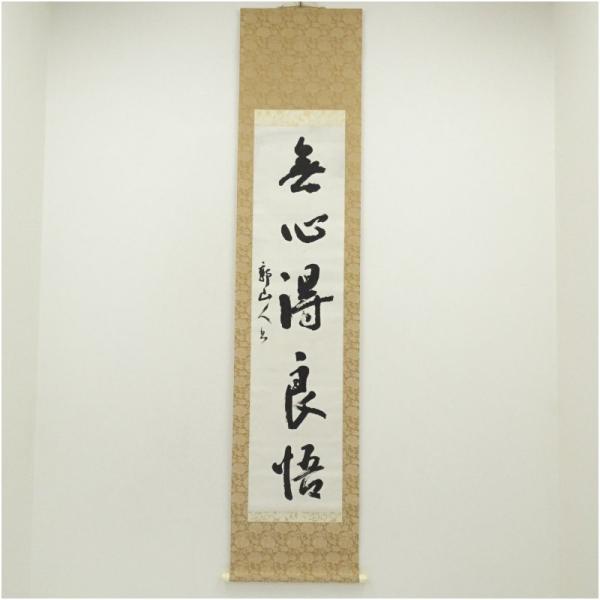 無心得良悟
郭山人書